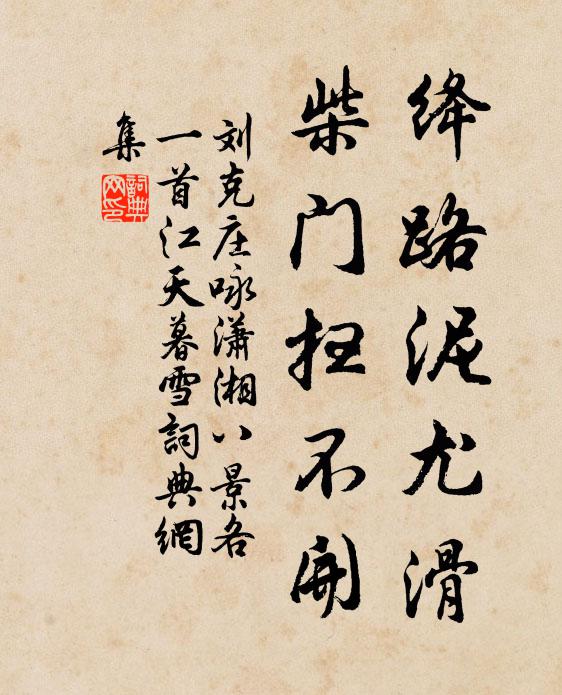 绛路泥尤滑
柴门扫不开
刘克庄咏潇湘八景各
一首江天暮雪詞典網
集
詞典網印